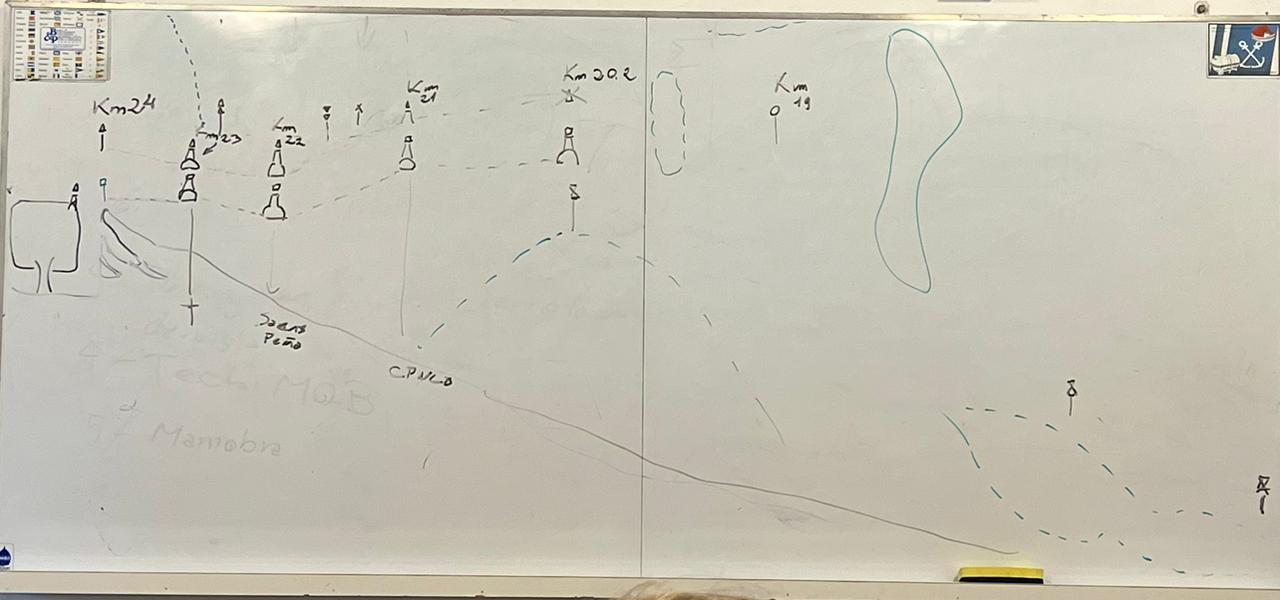 Km 24
Km 23
Km
22
Km
21
Km 20.2
Km
19
Saens
Peña
4 - Tech MQB
Mamobra